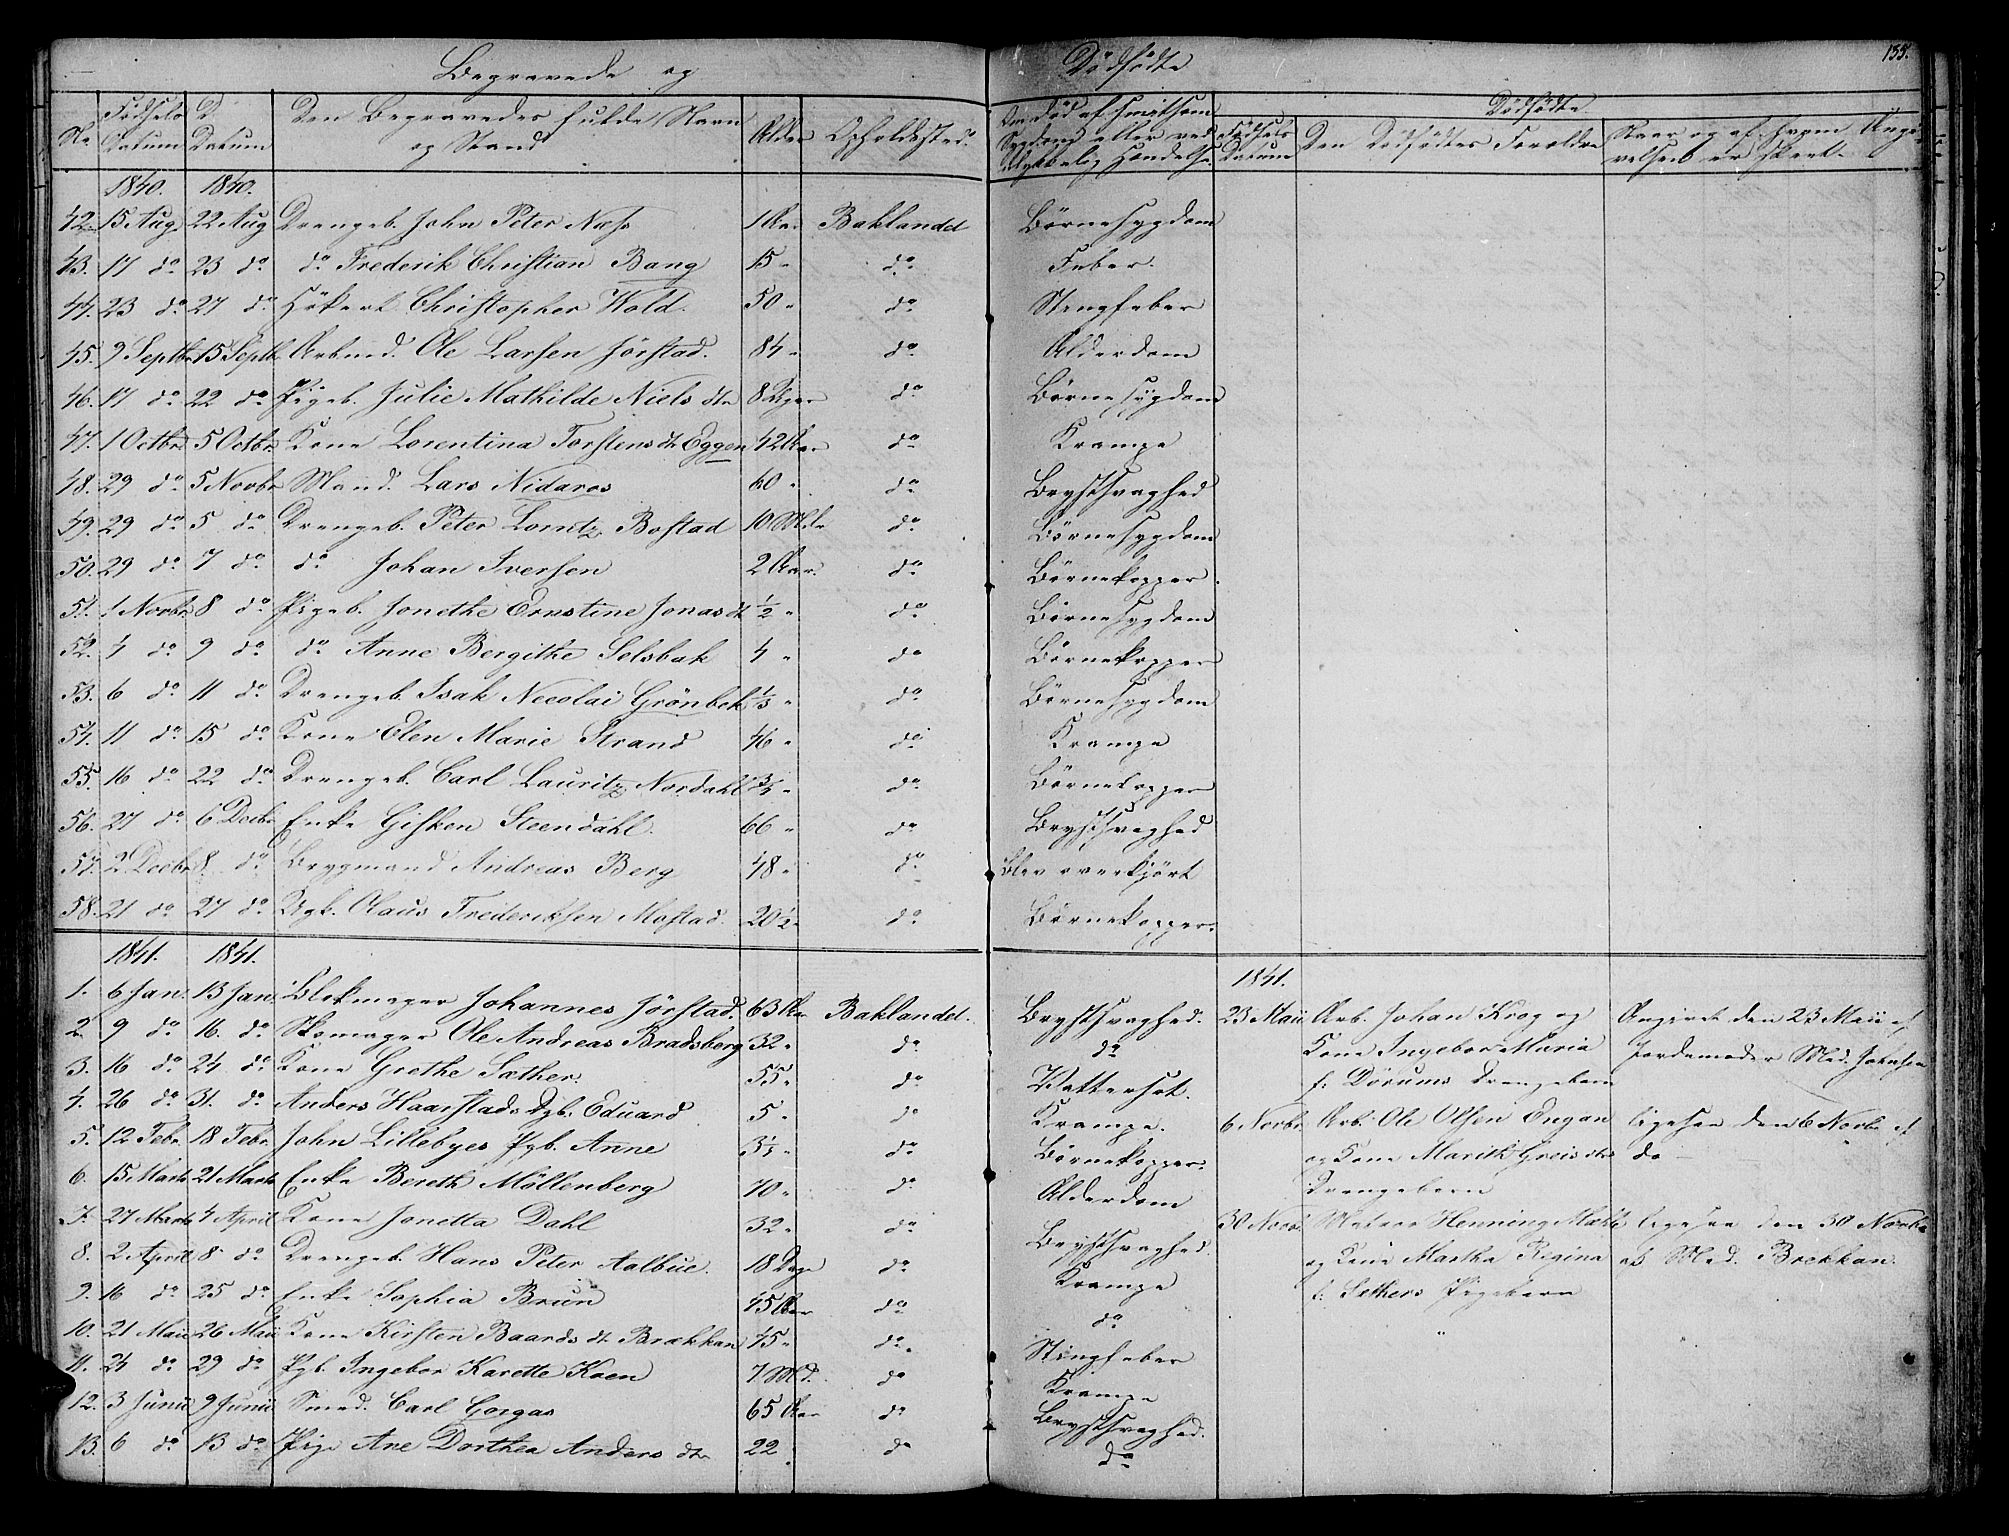 Begravede og Dødfødte
155.
No Fødsels Datum D Datum Den Begravedes fulde Navn og Stand Alder Opholdssted. Om død af smitsom Sygdom eller ved ulykkelig Hændelse.
Dødfødte.
Fødsels Datum Den Dødfødtes Forældre Naar og af hvem Angivelsen er skeet.
1840. 1840.
42. 15 Aug. 22 Aug Drengeb. John Peter Næss 1 Aar Baklandet Børnesygdom
43. 17 do 23 do do Frederik Christian Bang 15 " do Feber.
44. 23 do 27 do Høkert Christopher Wold. 50 " do Stingfeber
45. 9 Septbr 15 Septb. Arbmd. Ole Larsen Jørstad. 84 " do Alderdom
46. 17 do 22 do Pigeb. Julie Mathilde Niels dtr 8 Uger do Børnesygdom
47. 1 Octbr 5 Octbr. Kone Lorentina Torstens dtr Eggen 42 Aar do Krampe
48. 29 do 5 Novbr Mand. Lars Nidaros 60 " do Brystsvaghed
49. 29 do 5 do Drengeb. Peter Lorntz Bostad 10 Mdr do Børnesygdom
50. 29 do 7 do do Johan Iversen 2 Aar. do Børnekopper.
51. 1 Novbr 8 do Pigeb. Jonethe Ernstine Jonas dtr ½ " do Børnesygdom
52. 4 do 9 do do Anne Bergithe Selsbak 4 " do Børnekopper
53. 6 do 11 do Drengeb. Isak Neeolai Grönbek ⅓ " do Børnesygdom
54. 11 do 15 do Kone Elen Marie Strand 46 " do Krampe
55. 16 do 22 do Drengeb. Carl Lauritz Nordahl ¾ " do Børnekopper
56. 27 do 6 Decbr Enke Gisken Steendahl. 66 " do Brystsvaghed
57. 2 Decbr 8 do Brygmand Andreas Berg 48 " do Blev overkjört
58. 21 do 27 do Ugk. Olaus Frederiksen Mostad 20½ " do Børnekopper.
1841. 1841. 1841.
1. 6 Jan. 13 Jan. Blokmager Johannes Jörstad. 63 Aar Baklandet. Brystsvaghed.
2. 9 do 16. do Skomager Ole Andreas Bradsberg 32 " do do
3. 16 do 24 do Kone Grethe Sæther. 55 " do Vattersot.
4. 26 do 31. do Anders Haarstads Dgb. Eduard 5 " do Krampe.
5. 12 Febr. 18 Febr. John Lillebyes Pgb. Anne 3½ " do Børnekopper.
6. 15 Marts 21 Marts Enke Bereth Möllenberg 70 " do Alderdom
7. 27 Marts 4 April Kone Jonetta Dahl 32 " do Brystsvaghed.
8. 2 April 8 do Drengeb. Hans Peter Aalbue. 18 Dage do Krampe
9. 16 do 25 do Enke Sophia Brun 45 Aar do do
10. 21 Maii 26 Maii Kone Kirsten Baards dtr Brækkan 45 " do. Stingfeber
11. 24 do 29 do Pgb. Ingebor Karette Koen 7 Md. do Krampe
12. 3 Junii 9 Junii Smed. Carl Gorgas 65 Aar do Brystsvaghed.
13. 6 do 13 do Pige Ane Dorthea Anders dtr 22 " do do
23 Maii Arb. Johan Krog og Angivet den 23 Maii af
Kone Ingebor Maria Jordemoder Md. Johnsen
f. Dörums Drengebarn
6 Novbr. Arb. Ole Olsen Engan ligesaa den 6 Novbr af
og Kone Marith Greis dtr do
Drengebarn
30 Novbr. Henning ligesaa den 30 Novbr
og Kone Martha Regina af Md. Brekkan.
f. Sethers Pigebarn